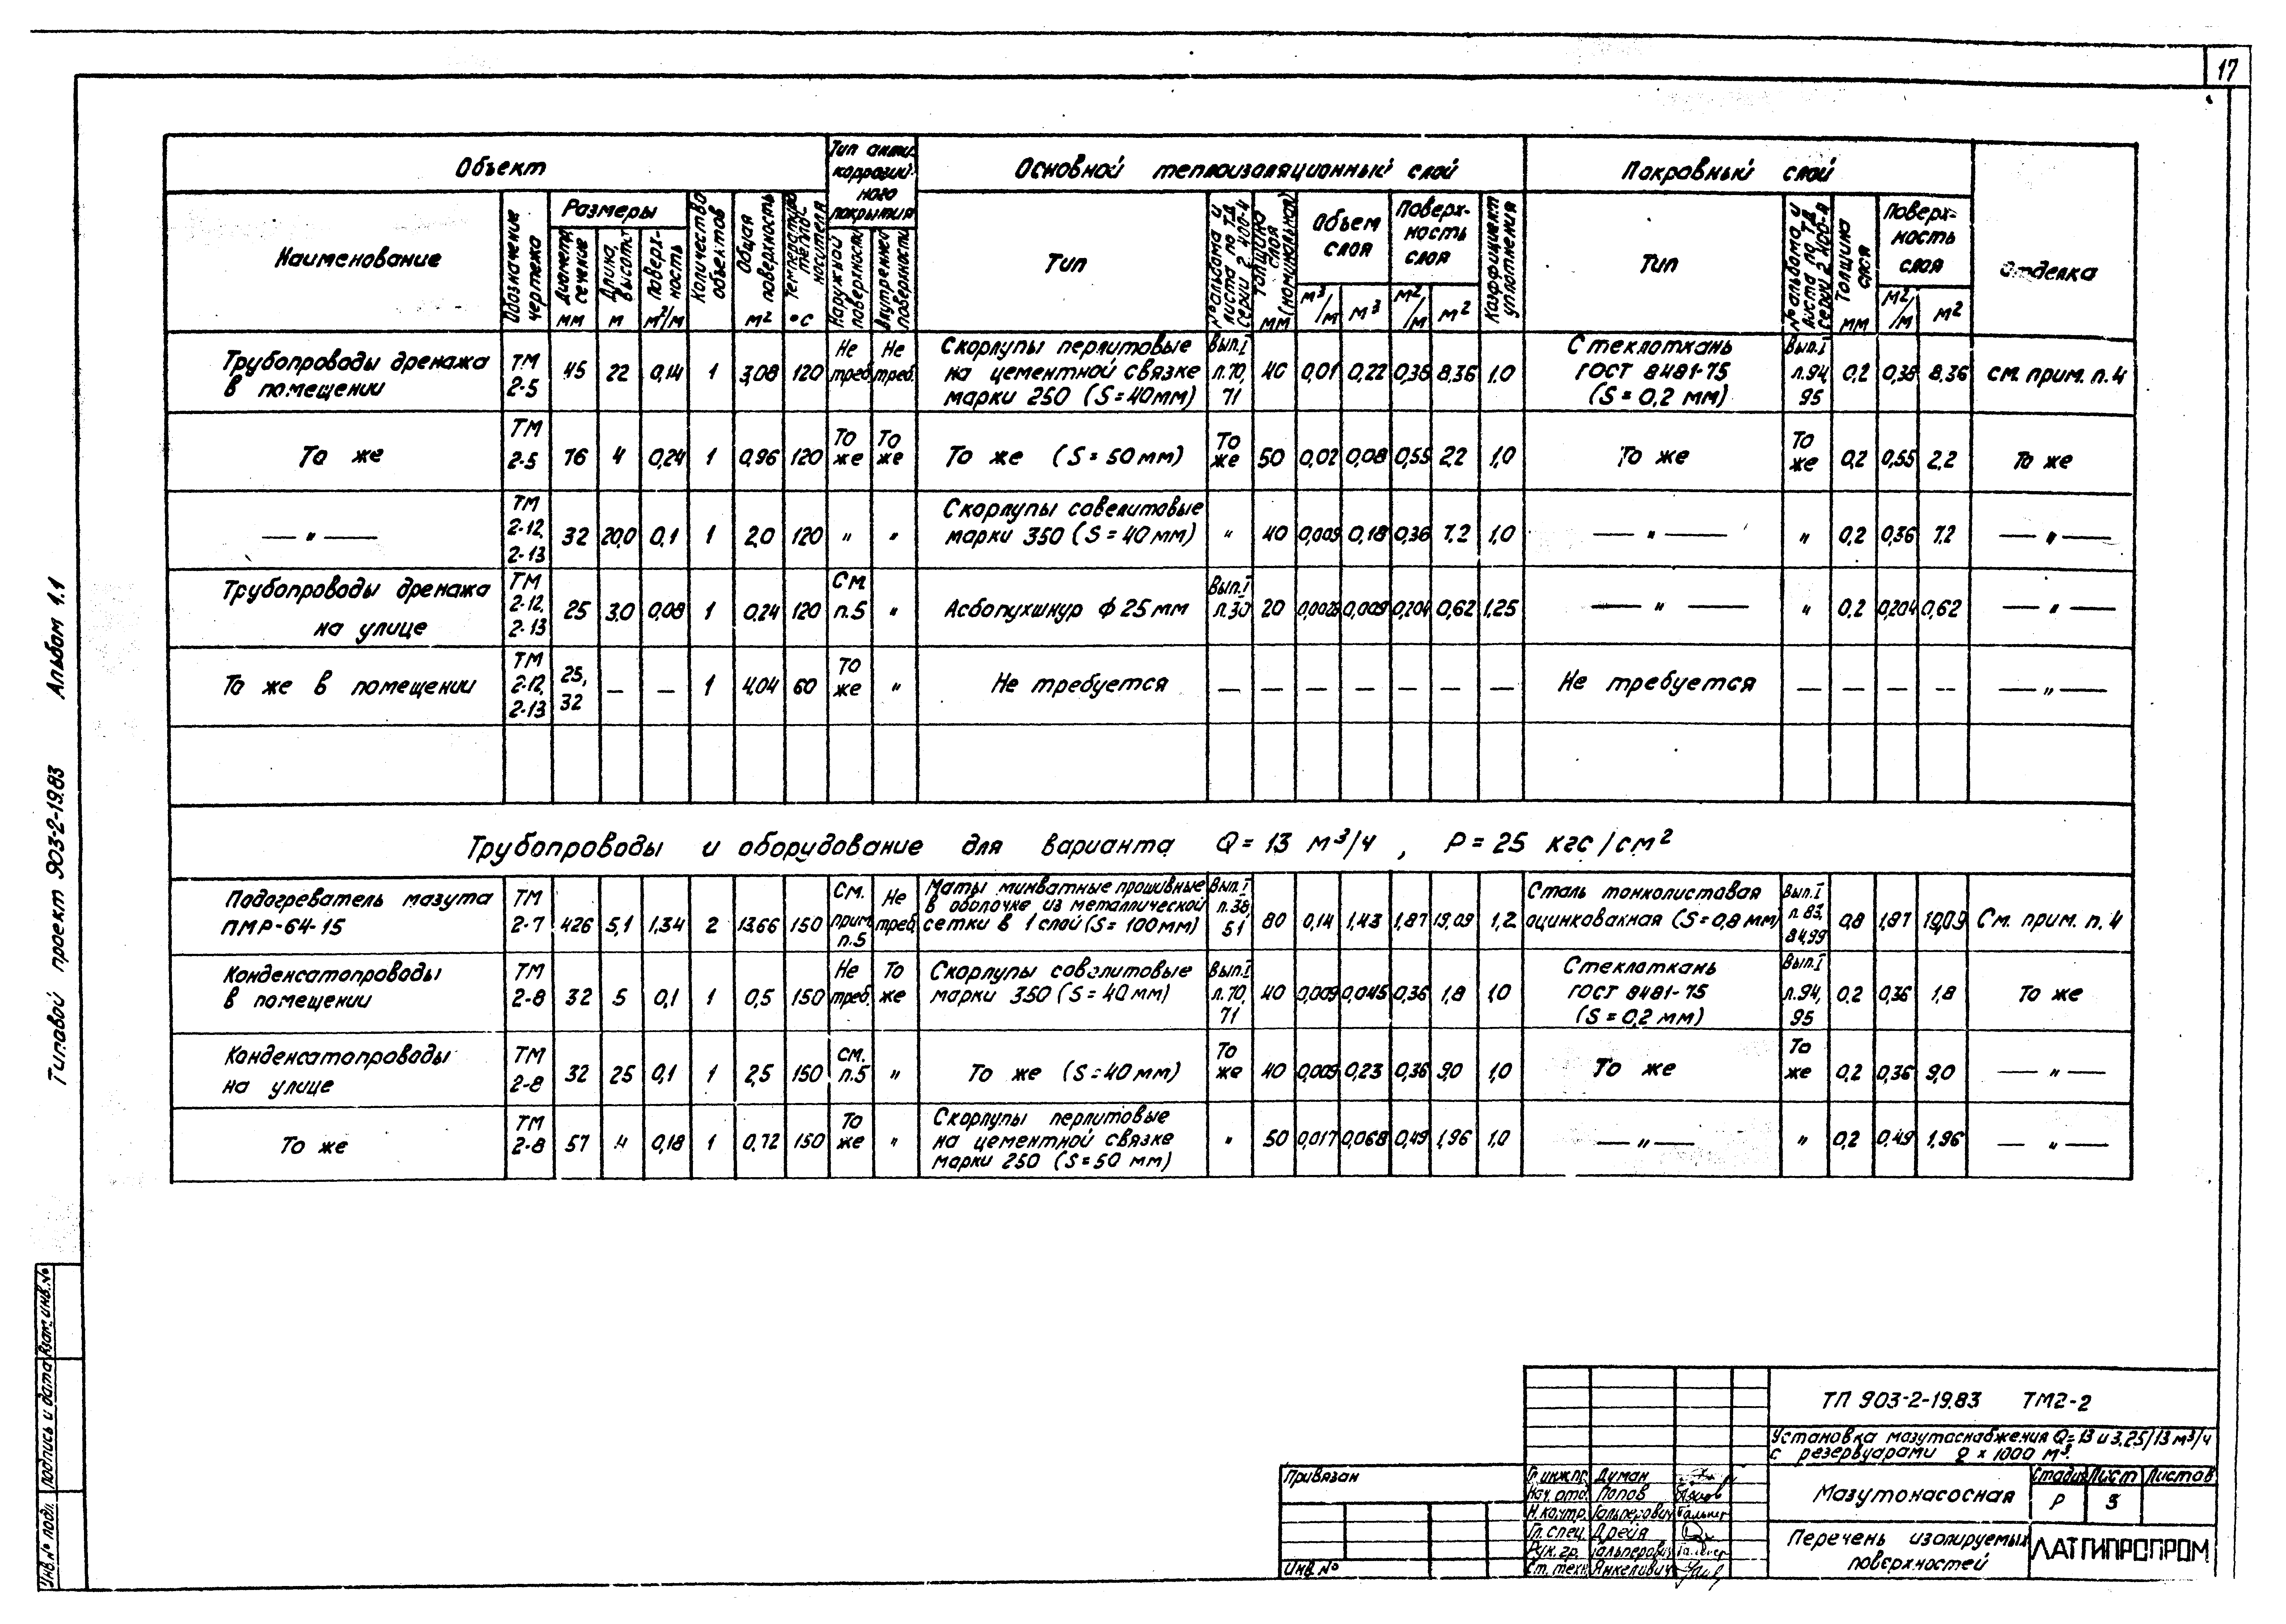 17
Типовой проект 903-2-19.83 Альбом 1.1
Объект
Тип анти-
коррозий-
ного
покрытия
Основной теплоизоляционный слой
Покровный слой
Отделка
Наименование
Обозначение чертежа
Размеры
Диаметр, сечение мм
Длина, высота м
Поверх-ность м²/м
Количество объектов
Общая поверхность м²
Температура теплоносителя °С
Наружной поверхности
Внутренней поверхности
Тип
№ альбома и листа по ТД серии 2.400-4
Толщина слоя (номинальная) мм
Объем слоя
м³/м
м³
Поверх-ность слоя
м²/м
м²
Коэффициент уплотнения
Тип
№ альбома и листа по ТД серии 2.400-4
Толщина слоя мм
Поверх-ность слоя
м²/м
м²
Трубопроводы дренажа в помещении ТМ 2-5 45 22 0,14 1 3,08 120 Не треб. Не треб. Скорлупы перлитовые на цементной связке марки 250 (S=40мм) Вып.I л.70, 71 40 0,01 0,22 0,38 8,36 1,0 Стеклоткань ГОСТ 8481-75 (S=0,2 мм) Вып.I л.94, 95 0,2 0,38 8,36 см. прим. п.4
То же ТМ 2-5 76 4 0,24 1 0,96 120 То же То же То же (S=50мм) То же 50 0,02 0,08 0,55 2,2 1,0 То же То же 0,2 0,55 2,2 То же
— " — ТМ 2-12, 2-13 32 20,0 0,1 1 2,0 120 " " Скорлупы совелитовые марки 350 (S=40мм) " 40 0,009 0,18 0,36 7,2 1,0 — " — " 0,2 0,36 7,2 — " —
Трубопроводы дренажа на улице ТМ 2-12, 2-13 25 3,0 0,08 1 0,24 120 См. п.5 " Асбопухшнур ф 25 мм Вып.I л.30 20 0,0028 0,009 0,204 0,62 1,25 — " — " 0,2 0,204 0,62 — " —
То же в помещении ТМ 2-12, 2-13 25, 32 — — 1 4,04 60 То же " Не требуется — — — — — — — Не требуется — — — — — " —
Трубопроводы и оборудование для варианта Q=13 м³/ч, P=25 кгс/см²
Подогреватель мазута ПМР-64-15 ТМ 2-7 426 5,1 1,34 2 13,66 150 См. прим. п.5 Не треб. Маты минватные прошивные в оболочке из металлической сетки в 1 слой (S=100мм) Вып.I л.38, 51 80 0,14 1,43 1,87 19,09 1,2 Сталь тонколистовая оцинкованная (S=0,8 мм) Вып.I л.83, 84,99 0,8 1,87 19,09 См. прим. п.4
Конденсатопроводы в помещении ТМ 2-8 32 5 0,1 1 0,5 150 Не треб. То же Скорлупы совелитовые марки 350 (S=40мм) Вып.I л.70, 71 40 0,009 0,045 0,36 1,8 1,0 Стеклоткань ГОСТ 8481-75 (S=0,2 мм) Вып.I л.94, 95 0,2 0,36 1,8 То же
Конденсатопроводы на улице ТМ 2-8 32 25 0,1 1 2,5 150 см. п.5 " То же (S=40мм) То же 40 0,009 0,23 0,36 9,0 1,0 То же То же 0,2 0,36 9,0 — " —
То же ТМ 2-8 57 4 0,18 1 0,72 150 То же " Скорлупы перлитовые на цементной связке марки 250 (S=50 мм) " 50 0,017 0,068 0,49 1,96 1,0 — " — " 0,2 0,49 1,96 — " —
Инв.№ подл. Подпись и дата Взам. инв.№
Привязан
Инв. №
Гл. инж. пр. Думан
Нач. отд. Попов
Н. контр. Гальперович
Гл. спец. Дрейя
Рук. гр. Гальперович
Ст. техн. Янкелевич
ТП 903-2-19.83 ТМ2-2
Установка мазутоснабжения Q=13 и 3,25/13 м³/ч
с резервуарами 2 х 1000 м³.
Мазутонасосная
Стадия Лист Листов
Р 3
Перечень изолируемых
поверхностей
ЛАТГИПРОПРОМ